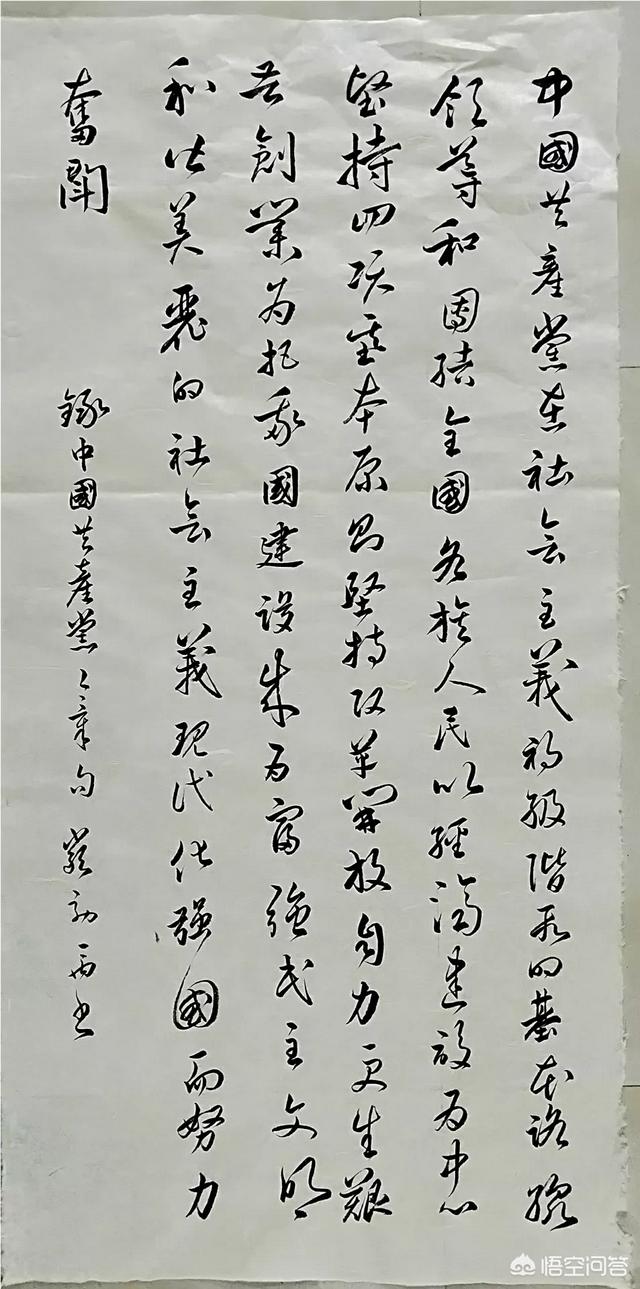 中國共產黨在社会主義初級階段的基本路線
领導和團結全國各族人民以經濟建設为中心
堅持四項基本原則堅持改革開放自力更生艱
苦創業为把我國建設成为富強民主文明
和谐美麗的社会主義現代化強國而努力
奮鬥
錄中國共產黨々章句
悟空问答